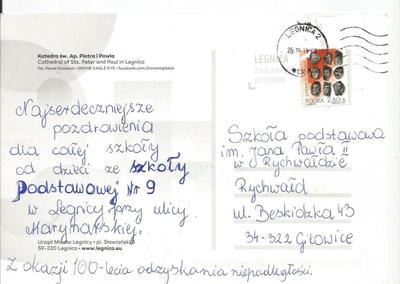 Katedra św. Ap. Piotra i Pawła
Cathedral of Sts. Peter and Paul in Legnica
Najserdeczniejsze
pozdrowienia
dla całej szkoły
od dzieci ze szkoły
Podstawowej Nr 9
w Legnicy przy ulicy
Marynarskiej.
Urząd Miasta Legnicy • pl. Słowiański
59-220 Legnica • www.legnica.eu
Z okazji 100-lecia odzyskania niepodległości.
LEGNICA 2
LEGNICA
z nią zawsze
po drodze
POLSKA 2,60 zł
Szkoła podstawowa
im. Jana Pawła II
w Rychwałdzie
Rychwałd
ul. Beskidzka 43
34-322 Gilowice